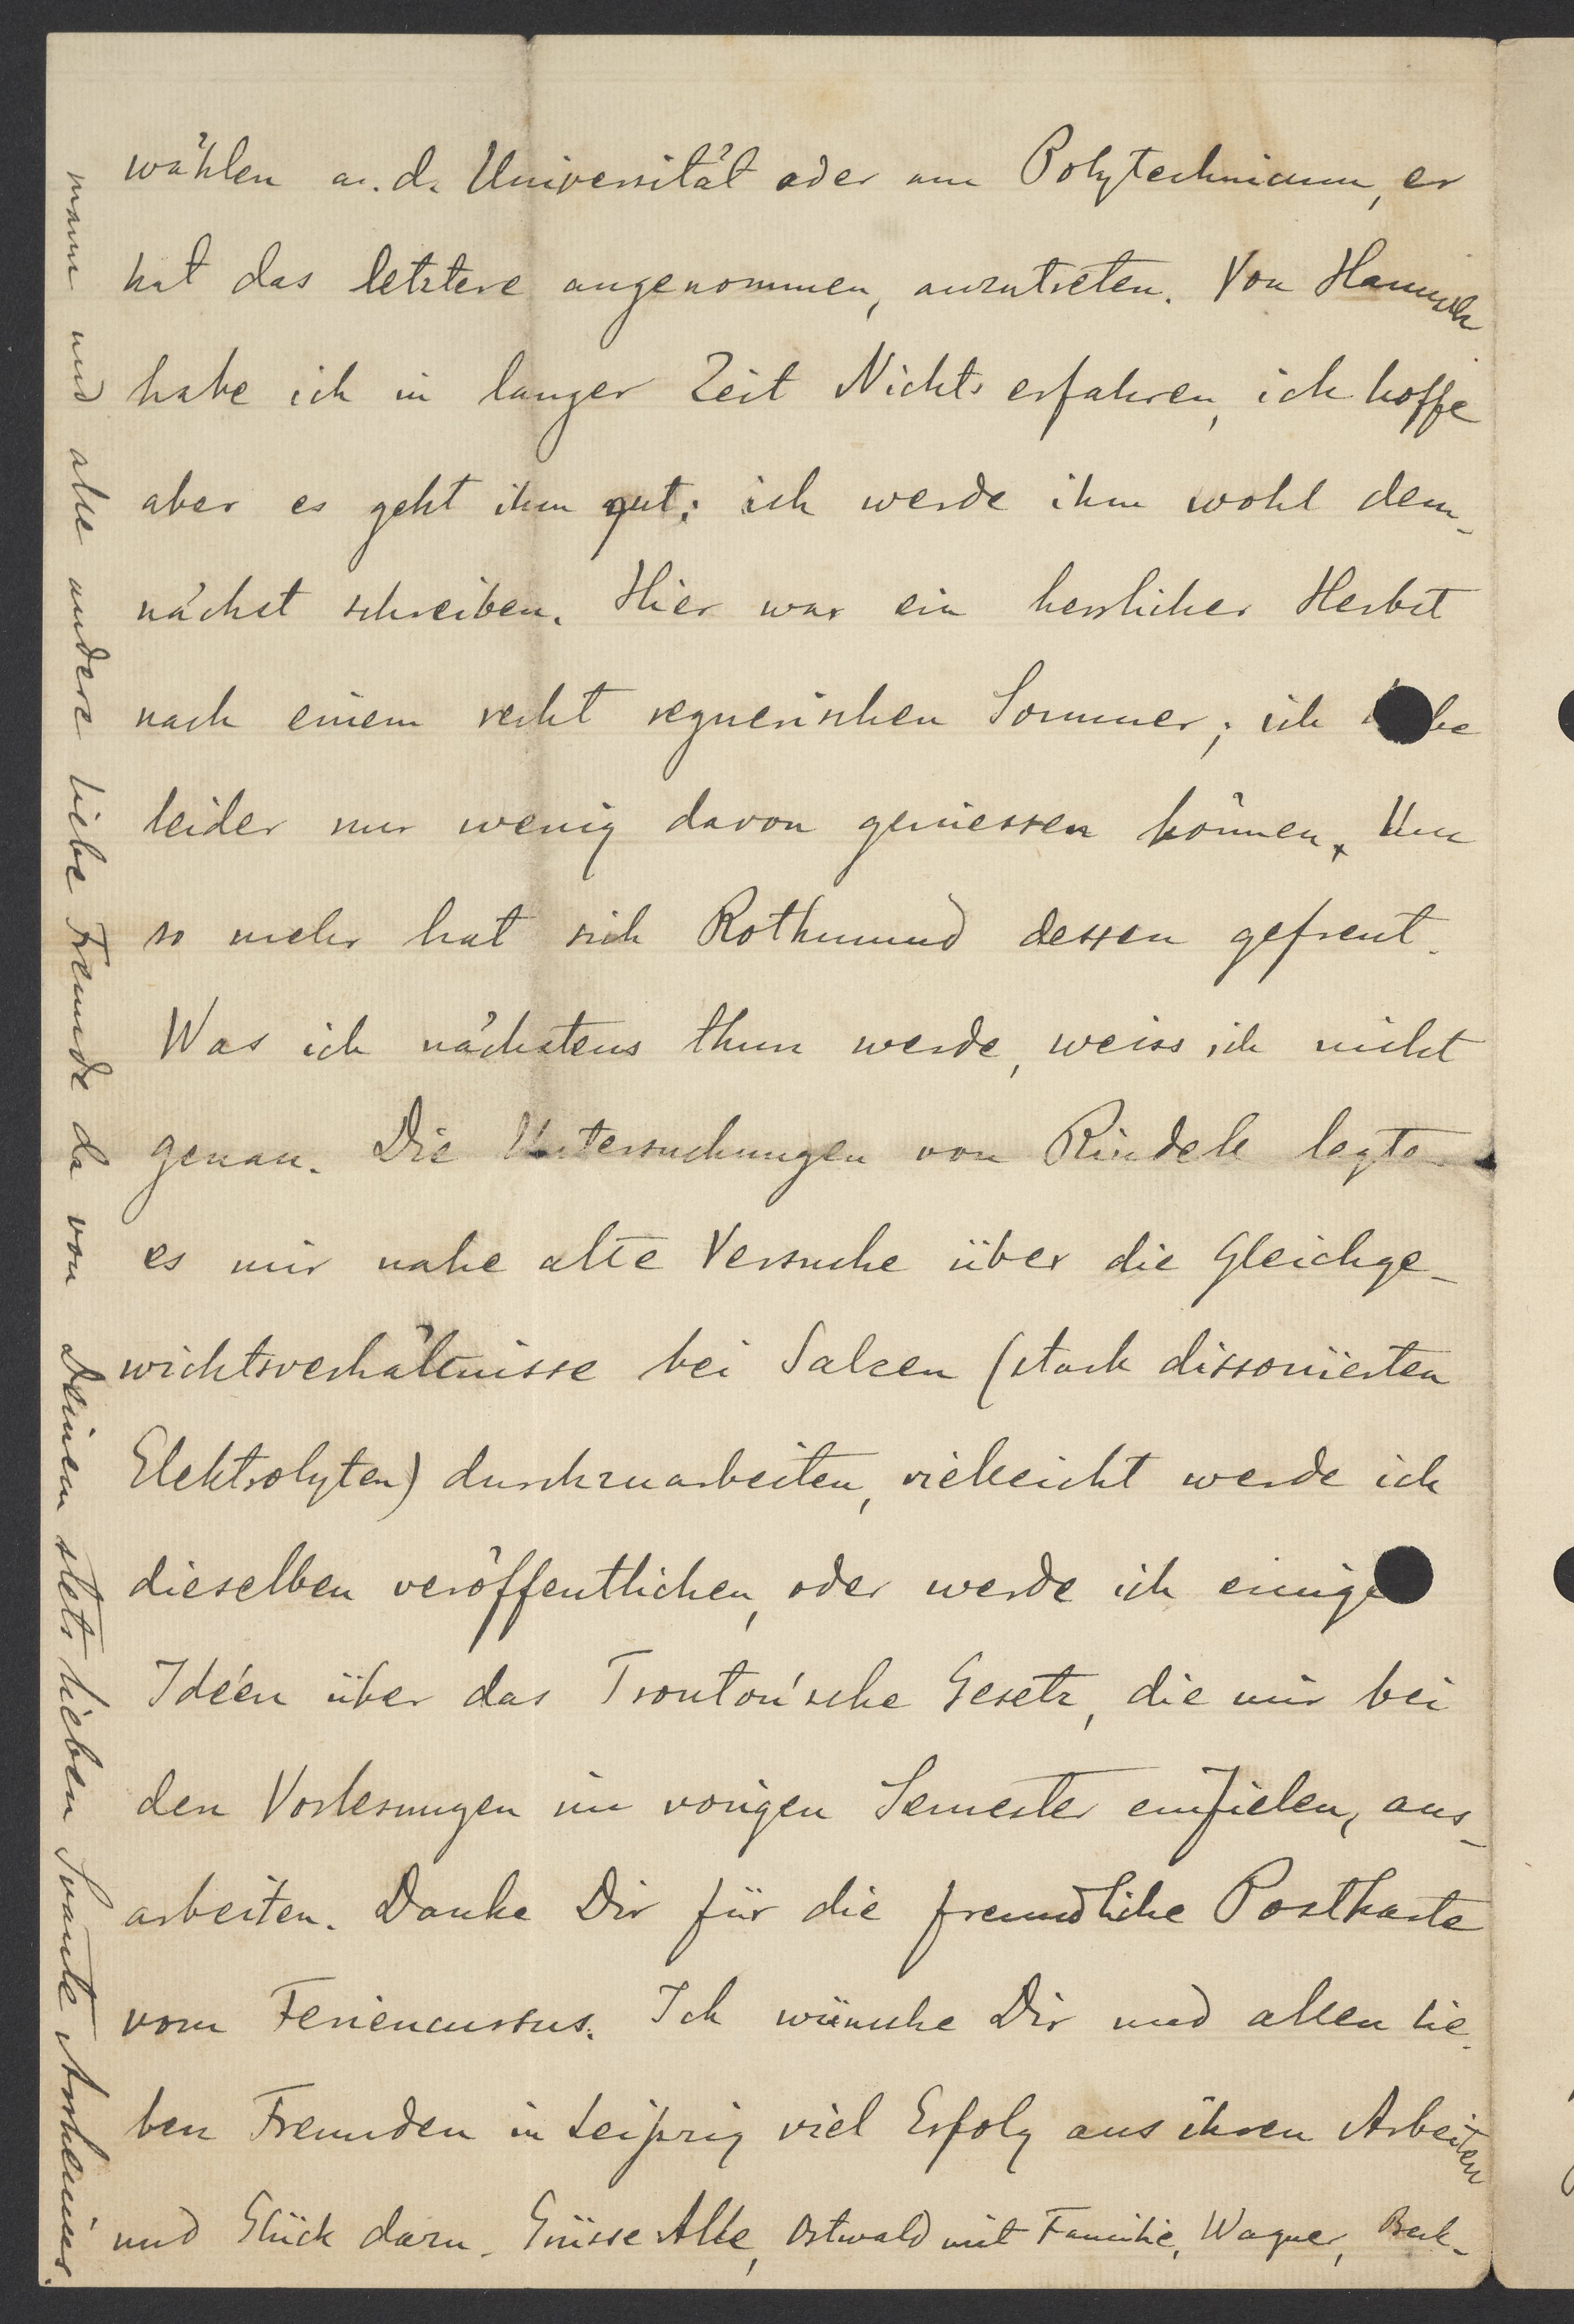 wählen a. d. Universität oder am Polytechnicum, er
hat das letztere angenommen, anzutreten. Von
habe ich in langer Zeit Nichts erfahren, ich hoffe
aber es geht ihm gut; ich werde ihm wohl dem-
nächst schreiben. Hier war ein herrlicher Herbst
nach einem recht regnerischen Sommer; ich
leider nur wenig davon geniessen können. Um
so mehr hat sich Rothmund dessen gefreut.
Was ich nächstens thun werde, weiss ich nicht
genau. Die Untersuchungen von Rindell legte
es mir nahe alte Versuche über die Gleichge-
wichtsverhältnisse bei Salzen (stark dissociierten
Elektrolyten) durchzuarbeiten, vielleicht werde ich
dieselben veröffentlichen, oder werde ich einige
Idéen über das Trouton'sche Gesetz, die mir bei
den Vorlesungen im vorigen Semester einfielen, aus-
arbeiten. Danke Dir für die freundliche Postkarte
vom Feriencursus. Ich wünsche Dir und allen lie-
ben Freunden in Leipzig viel Erfolg aus ihren Arbeiten
und Glück dazu. Grüsse Alle, Ostwald mit Familie, Wagner, Beck-
mann und alle andere liebe Freunde da von Deinem stets lieben Svante Arrhenius.